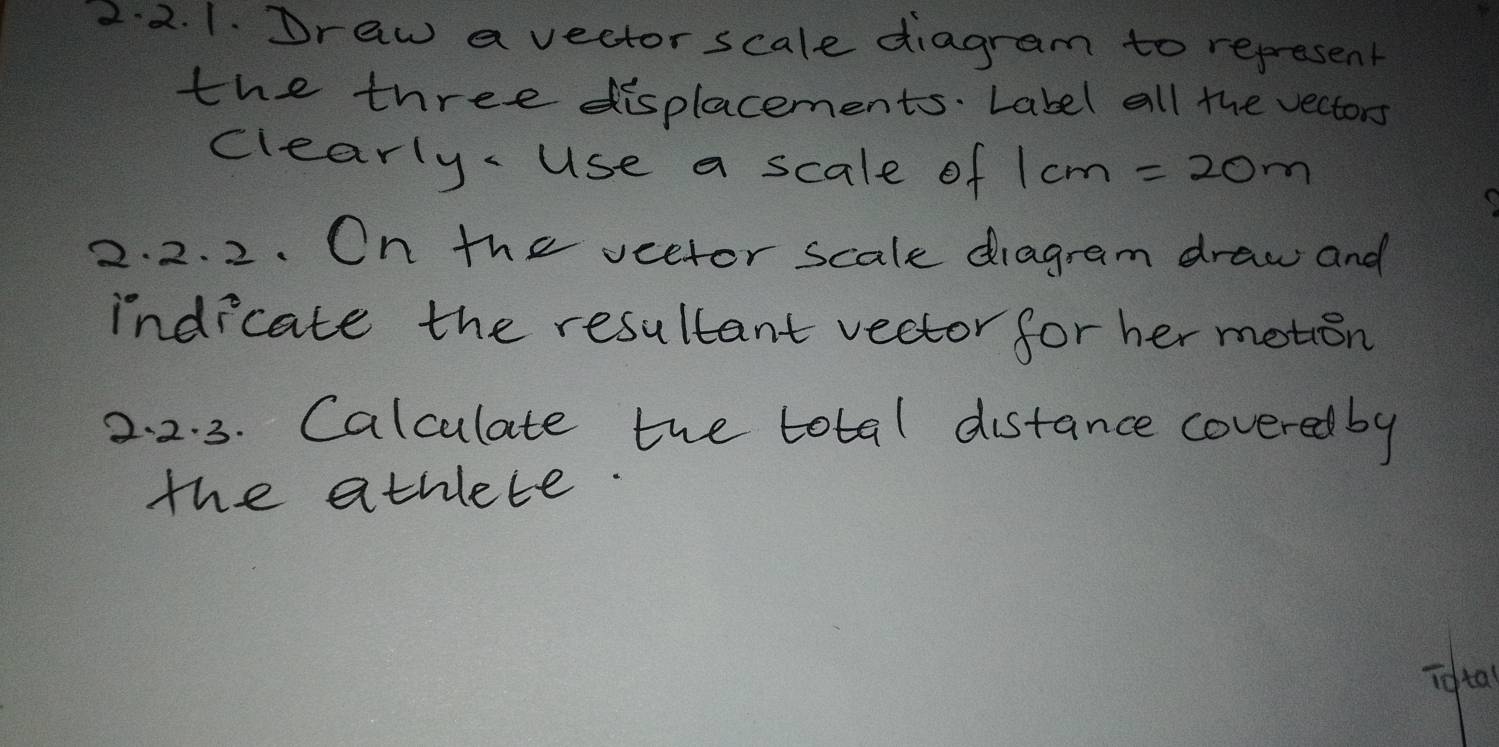 2.2.1. Draw a vector scale diagram to represent
the three displacements. Label all the vectors
Clearly. Use a scale of 1cm = 20m
2.2.2. On the vector scale diagram draw and
indicate the resultant vector for her motion
2.2.3. Calculate the total distance covered by
the athlete.
Total